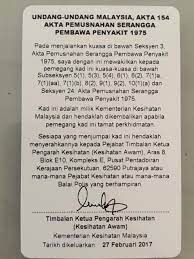 UNDANG-UNDANG MALAYSIA, AKTA 154
AKTA PEMUSNAHAN SERANGGA
PEMBAWA PENYAKIT 1975
Pada menjalankan kuasa di bawah Seksyen 3,
Akta Pemusnahan Serangga Pembawa Penyakit
1975, saya dengan ini mewakilkan kepada
pemegang kad ini kuasa-kuasa di bawah
Subseksyen 5(1), 5(3), 5(4), 6(1), 6(2), 7(1),
7(1)(aa), 7(1)(bb), 8(1), 8(2), 9(1), 10(2) dan
Seksyen 24. Akta Pemusnahan Serangga
Pembawa Penyakit 1975.
Kad ini adalah milik Kementerian Kesihatan
Malaysia dan hendaklah dikembalikan apabila
pemegang kad tamat perkhidmatan.
Sesiapa yang menjumpai kad ini hendaklah
menyerahkannya kepada Pejabat Timbalan Ketua
Pengarah Kesihatan (Kesihatan Awam), Aras 8,
Blok E10, Kompleks E, Pusat Pentadbiran
Kerajaan Persekutuan, 62590 Putrajaya atau
mana-mana Pejabat Kesihatan atau mana-mana
Balai Polis yang berhampiran.
Timbalan Ketua Pengarah Kesihatan
(Kesihatan Awam)
Kementerian Kesihatan Malaysia
Tarikh dikeluarkan: 27 Februari 2017